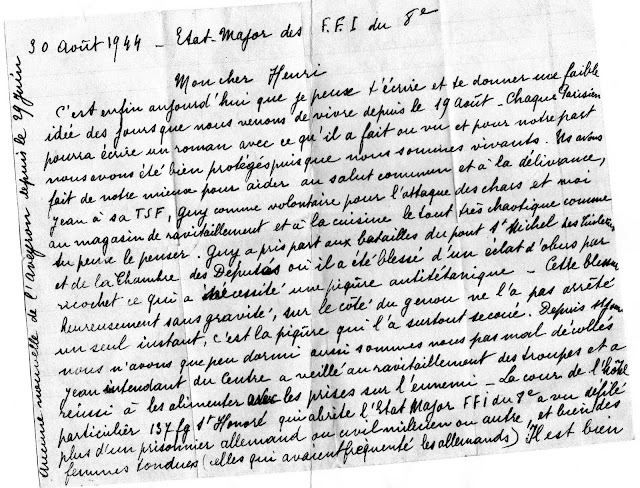 30 Août 1944 - Etat-Major des F.F.I du 8e
Mon cher Henri
C'est enfin aujourd'hui que je peux t'écrire et te donner une faible
idée des jours que nous venons de vivre depuis le 19 Août - Chaque Parisien
pourra écrire un roman avec ce qu'il a fait ou vu et pour notre part
nous avons été bien protégés puisque nous sommes vivants. Ns avons
fait de notre mieux pour aider au salut commun et à la délivrance,
Jean à sa TSF, Guy comme volontaire pour l'attaque des chars et moi
au magasin de ravitaillement et à la cuisine le tout très chaotique comme
tu peux le penser. Guy a pris part aux batailles du pont St Michel des Tuileries
et de la Chambre des Députés où il a été blessé d'un éclat d'obus par
ricochet ce qui a nécessité une piqûre antitétanique - Cette blessure
heureusement sans gravité, sur le côté du genou ne l'a pas arrêté
un seul instant, c'est la piqûre qui l'a surtout secoué. Depuis
nous n'avons que peu dormi aussi sommes nous pas mal décollés
Jean intendant du Centre a veillé au ravitaillement des troupes et a
réussi à les alimenter avec les prises sur l'ennemi - La cour de l'hôtel
particulier 137 fg St Honoré qui abrite l'Etat Major FFI du 8e a vu défilé
plus d'un prisonnier allemand ou civil milicien ou autre, et bien des
femmes tondues (celles qui avaient fréquenté les allemands) Il est bien
aucune nouvelle de l'aveyron depuis le 29 Juin